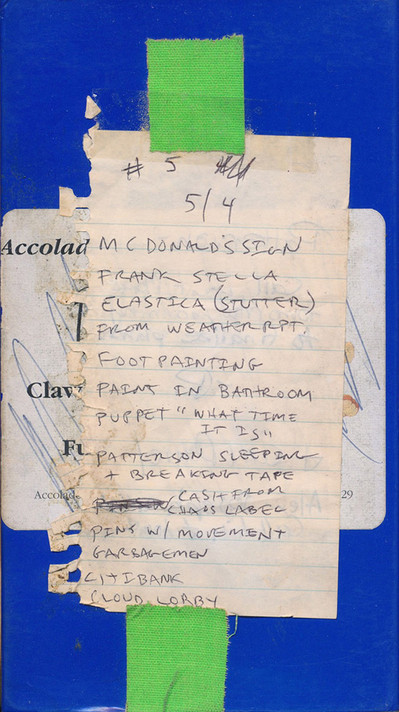 # 5
5/4
Accolad
MCDONALD'S SIGN
FRANK STELLA
ELASTICA (STUTTER)
FROM WEATHER RPT.
FOOT PAINTING
Claw
PAINT IN BATHROOM
PUPPET "WHAT TIME
IT IS"
Fu
PATTERSON SLEEPING
+ BREAKING TAPE
Accolad
CASH FROM
29
CHAOS LABEL
PINS W/ MOVEMENT
GARBAGEMEN
CITIBANK
CLOUD LOBBY